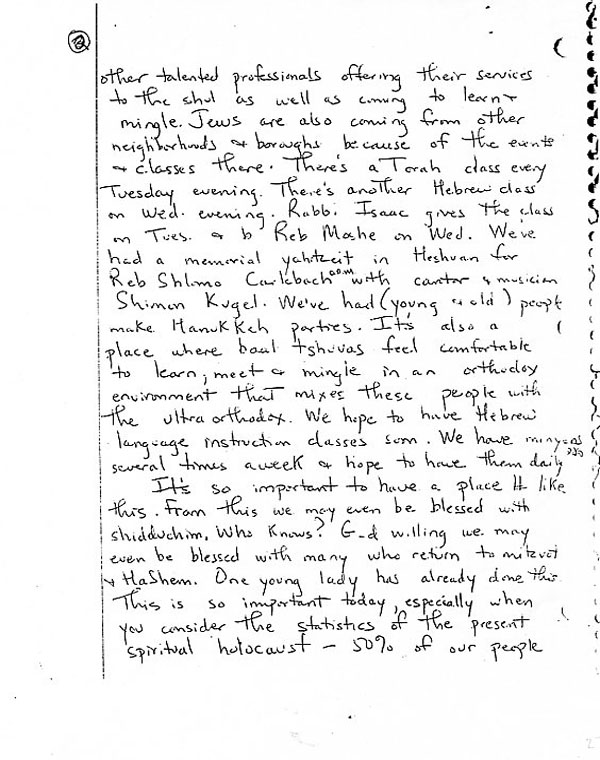 2
other talented professionals offering their services
to the shul as well as coming to learn +
mingle. Jews are also coming from other
neighborhoods & boroughs because of the events
+ classes there. There's a Torah class every
Tuesday evening. There's another Hebrew class
on Wed. evening. Rabbi Isaac gives the class
on Tues. & Reb Moshe on Wed. We've
had a memorial yahtzeit in Heshvan for
Reb Shlomo Carlebach with cantor & musician
Shimon Kugel. We've had (young & old) people
make Hanukkah parties. It's also a
place where baal tshuvas feel comfortable
to learn, meet & mingle in an orthodox
environment that mixes these people with
the ultra orthodox. We hope to have Hebrew
language instruction classes soon. We have minyans
several times a week & hope to have them daily
It's so important to have a place like
this. From this we may even be blessed with
shidduchim, Who Knows? G-d willing we may
even be blessed with many who return to mitzvot
+ HaShem. One young lady has already done this.
This is so important today, especially when
you consider the statistics of the present
spiritual holocaust - 50% of our people